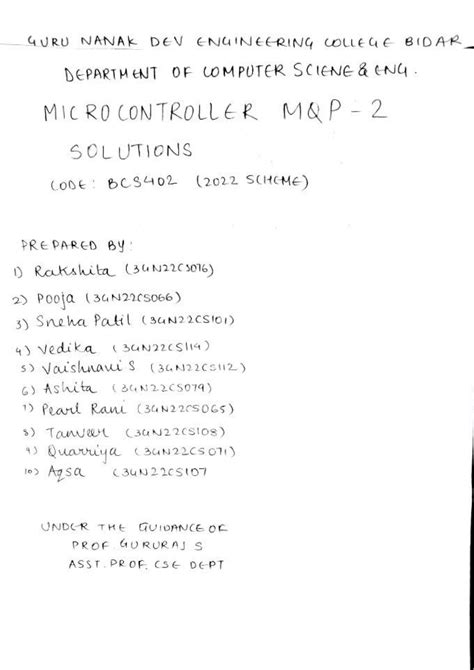 GURU NANAK DEV ENGINEERING COLLEGE BIDAR
DEPARTMENT OF COMPUTER SCIENE & ENG.
MICROCONTROLLER MQP - 2
SOLUTIONS
CODE: BCS402 (2022 SCHEME)
PREPARED BY:
1) Rakshita (3GN22CS076)
2) Pooja (3GN22CS066)
3) Sneha Patil (3GN22CS101)
4) Vedika (3GN22CS114)
5) Vaishnavi S (3GN22CS112)
6) Ashita (3GN22CS079)
7) Pearl Rani (3GN22CS065)
8) Tanveer (3GN22CS108)
9) Quarriya (3GN22CS071)
10) Aqsa (3GN22CS107
UNDER THE GUIDANCE OF
PROF. GURURAJ S
ASST. PROF. CSE DEPT